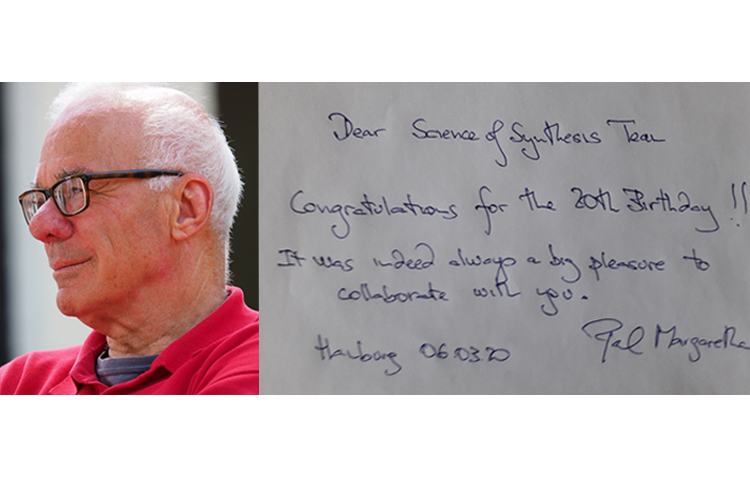 Dear Science of Synthesis Team
Congratulations for the 20th Birthday !!
It was indeed always a big pleasure to
collaborate with you.
Hamburg 06.03.20
Pal Margaretha